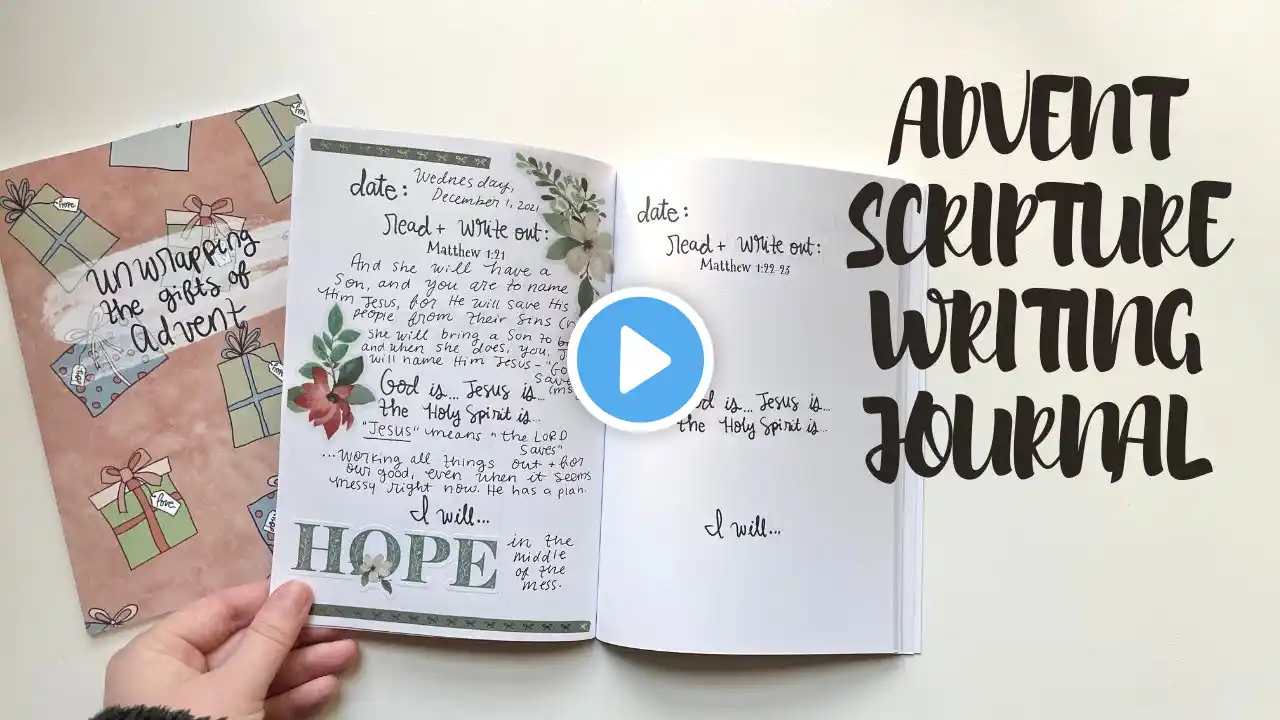 ADVENT
SCRIPTURE
WRITING
JOURNAL
unwrapping
the gifts of
Advent
hope
love
date: Wednesday,
December 1, 2021
Read + Write out:
Matthew 1:21
And she will have a
Son, and you are to name
Him Jesus, for He will save His
people from their sins
she will bring a son to
and when she does, you,
will name Him Jesus-
God is... Jesus is...
the Holy Spirit is...
"Jesus" means "the LORD
Saves"
...working all things out + for
our good, even when it seems
messy right now. He has a plan.
I will...
HOPE in the
middle
of the
mess.
date:
Read + Write out:
Matthew 1:22-23
is... Jesus is...
the Holy Spirit is...
I will...